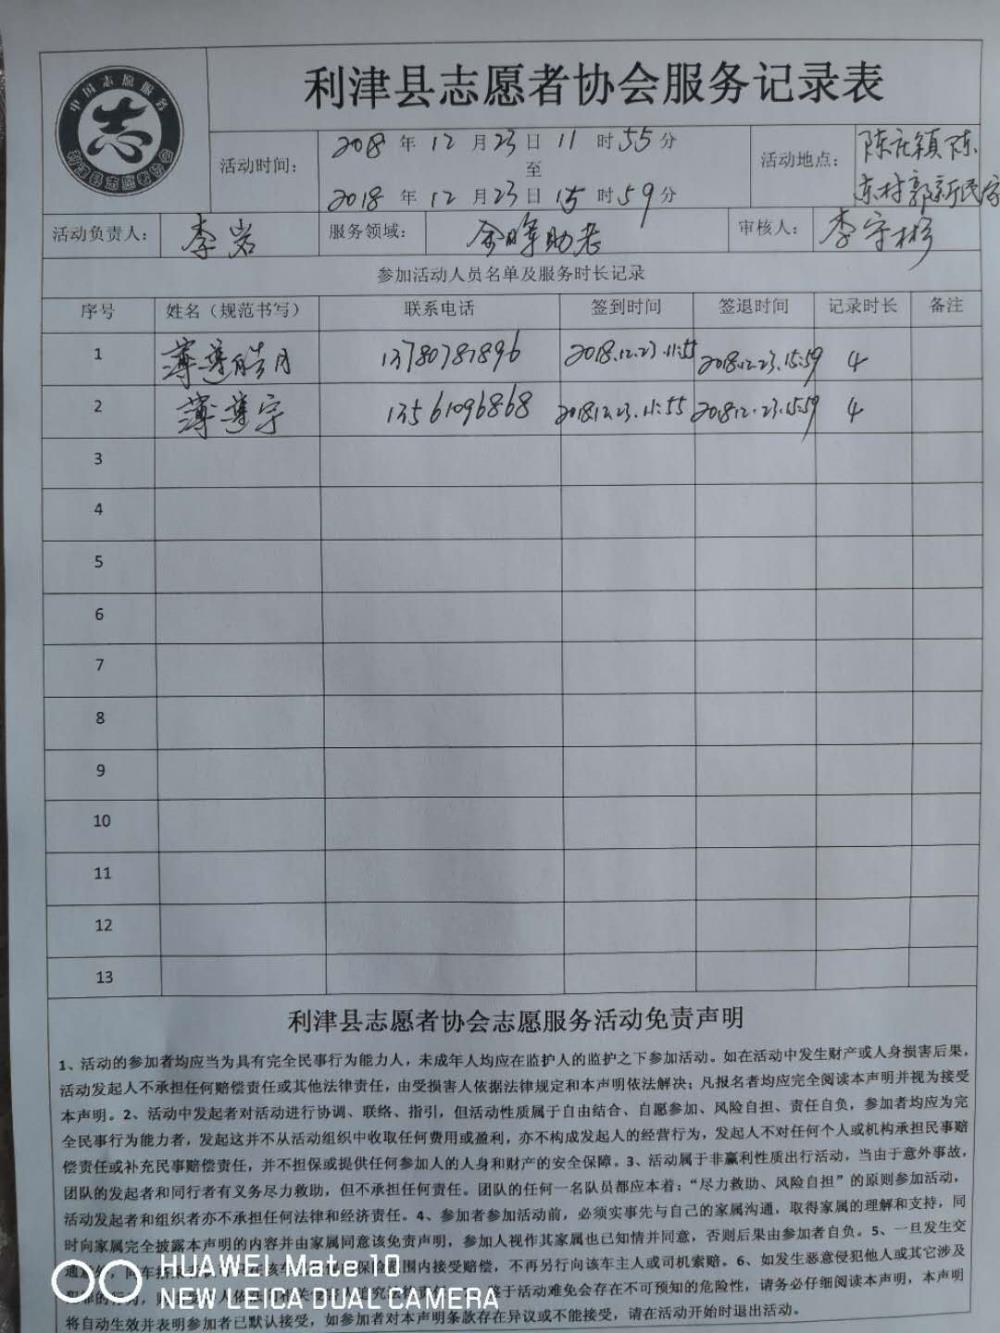 中国志愿服务
志
利津县志愿者协会
利津县志愿者协会服务记录表
活动时间：
2018 年 12 月 23 日 11 时 55 分
至
2018 年 12 月 23 日 15 时 59 分
活动地点：
陈庄镇陈
东村郭新民家
活动负责人： 李岩 服务领域： 余晖助老 审核人： 李守彬
参加活动人员名单及服务时长记录
序号 姓名（规范书写） 联系电话 签到时间 签退时间 记录时长 备注
1 薄尊皓月 13780787896 2018.12.23.11:55 2018.12.23.15:59 4
2 薄尊宇 13561096868 2018.12.23.11:55 2018.12.23.15:59 4
3
4
5
6
7
8
9
10
11
12
13
利津县志愿者协会志愿服务活动免责声明
1、活动的参加者均应当为具有完全民事行为能力人，未成年人均应在监护人的监护之下参加活动。如在活动中发生财产或人身损害后果，
活动发起人不承担任何赔偿责任或其他法律责任，由受损害人依据法律规定和本声明依法解决；凡报名者均应完全阅读本声明并视为接受
本声明。2、活动中发起者对活动进行协调、联络、指引，但活动性质属于自由结合、自愿参加、风险自担、责任自负，参加者均应为完
全民事行为能力者，发起这并不从活动组织中收取任何费用或盈利，亦不构成发起人的经营行为，发起人不对任何个人或机构承担民事赔
偿责任或补充民事赔偿责任，并不担保或提供任何参加人的人身和财产的安全保障。3、活动属于非赢利性质出行活动，当由于意外事故，
团队的发起者和同行者有义务尽力救助，但不承担任何责任。团队的任何一名队员都应本着：“尽力救助、风险自担”的原则参加活动，
活动发起者和组织者亦不承担任何法律和经济责任。4、参加者参加活动前，必须实事先与自己的家属沟通，取得家属的理解和支持，同
时向家属完全披露本声明的内容并由家属同意该免责声明，参加人视作其家属也已知情并同意，否则后果由参加者自负。5、一旦发生交
围内接受赔偿，不再另行向该车主人或司机索赔。6、如发生恶意侵犯他人或其它涉及
于活动难免会存在不可预知的危险性，请务必仔细阅读本声明，本声明
将自动生效并表明参加者已默认接受，如参加者对本声明条款存在异议或不能接受，请在活动开始时退出活动。
HUAWEI Mate 10
NEW LEICA DUAL CAMERA